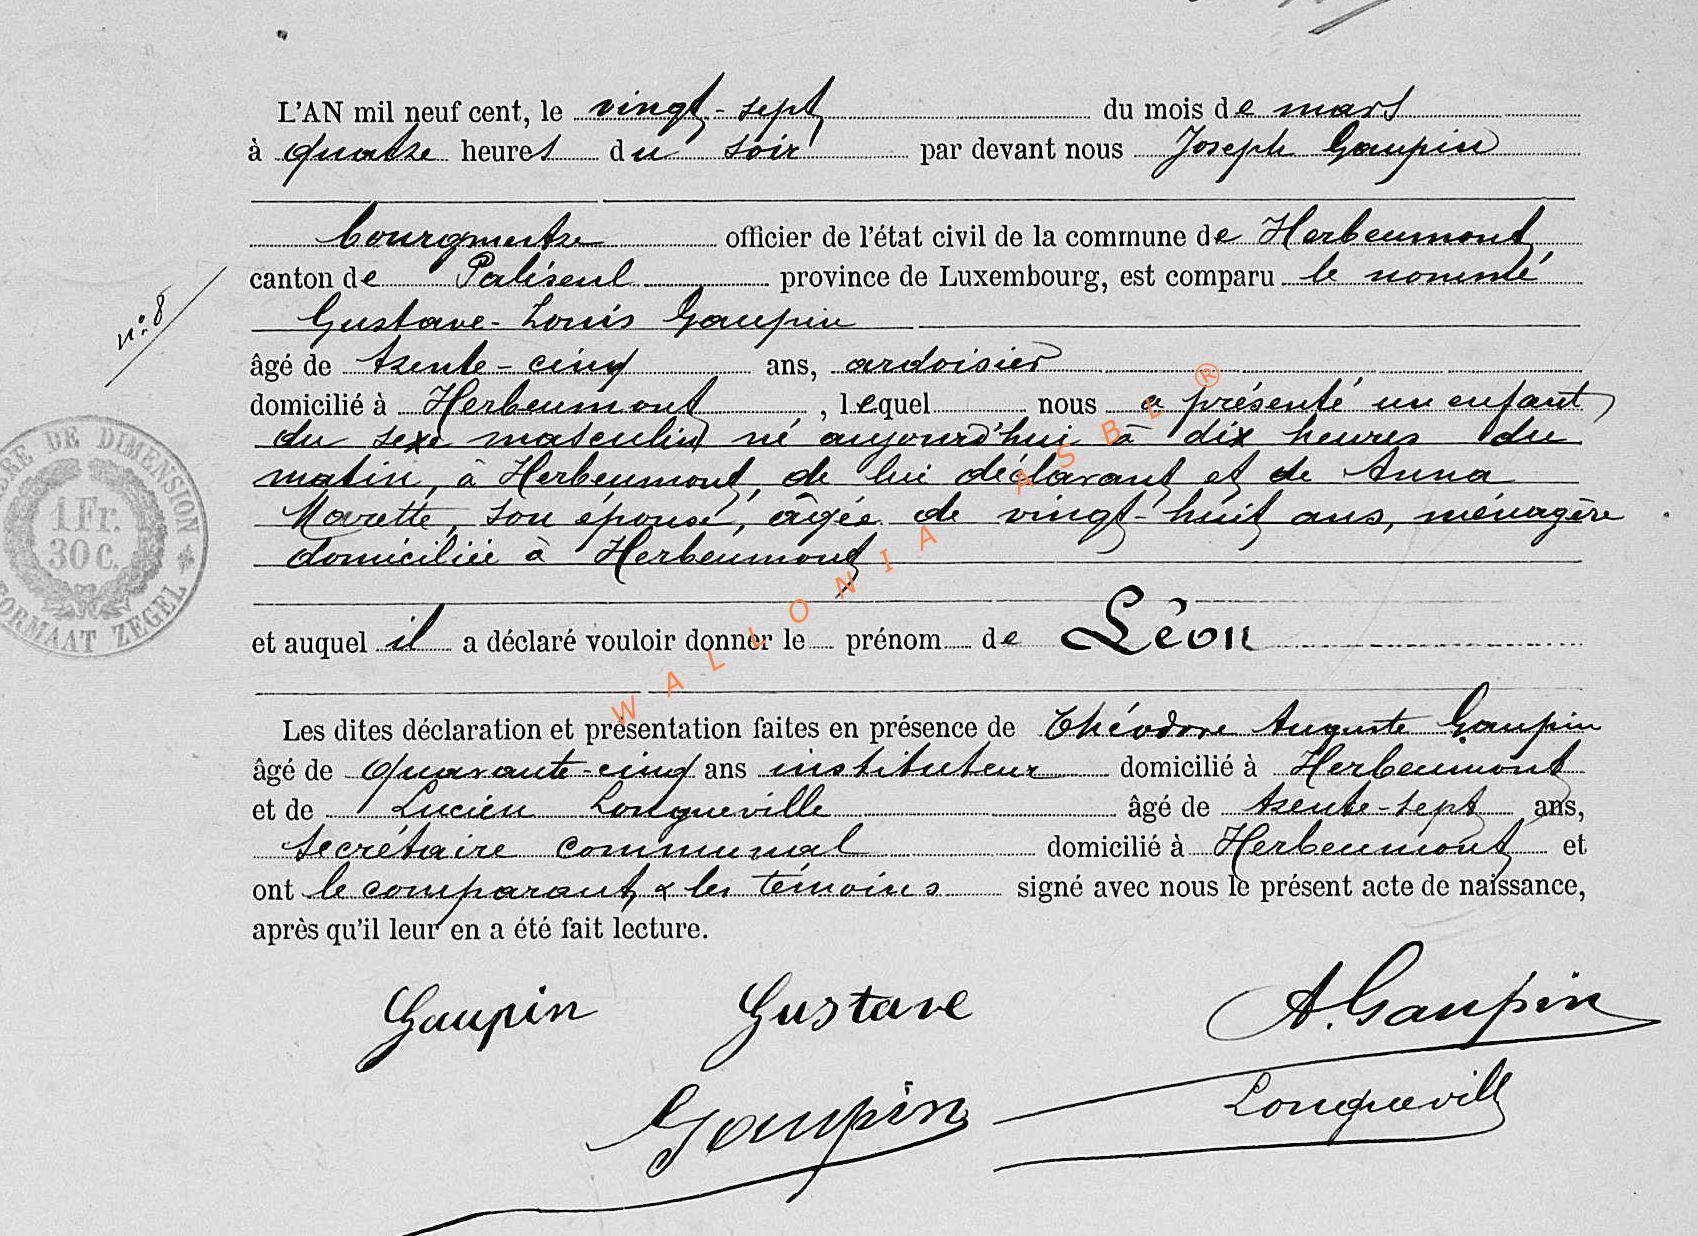 L'AN mil neuf cent, le vingt-sept du mois de mars
à quatre heures du soir par devant nous Joseph Gaupin
bourgmestre officier de l'état civil de la commune de Herbeumont,
canton de Paliseul province de Luxembourg, est comparu le nommé
Gustave-Louis Gaupin
n° 8
âgé de trente-cinq ans, ardoisier
domicilié à Herbeumont, lequel nous a présenté un enfant
du sexe masculin né aujourd'hui à dix heures du
matin, à Herbeumont, de lui déclarant et de Anna
Marette, son épouse, âgée de vingt-huit ans, ménagère
domiciliée à Herbeumont
et auquel il a déclaré vouloir donner le prénom de Léon
Les dites déclaration et présentation faites en présence de Théodore Auguste Gaupin
âgé de quarante-cinq ans instituteur domicilié à Herbeumont
et de Lucien Longueville âgé de trente-sept ans,
secrétaire communal domicilié à Herbeumont et
ont le comparant & les témoins signé avec nous le présent acte de naissance,
après qu'il leur en a été fait lecture.
Gaupin Gustave A. Gaupin
Gaupin Longueville
DE DIMENSION
1 Fr.
30 c.
FORMAAT ZEGEL
WALLONIA ASBL ®